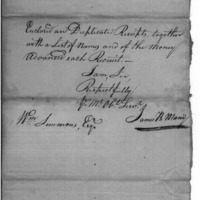 Enclosed are Duplicate Receipts, together
with a List of Names and of the Money
Advanced each Recruit.—
I am, Sir,
Respectfully
Yr. Mo. Obt. Servt.
James R. 
Wm. Simmons, Esq.